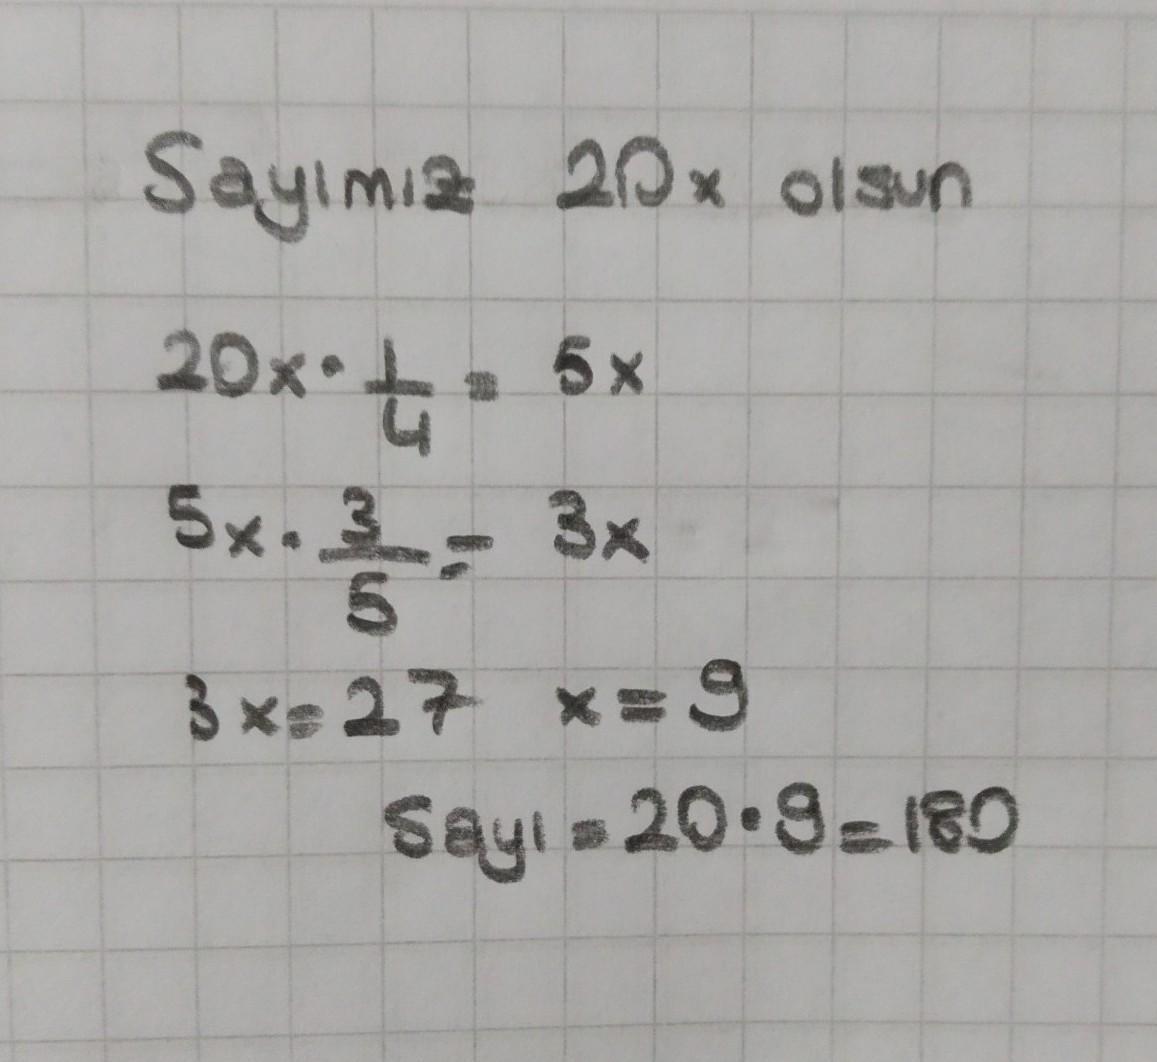 Sayımız 20x olsun
20x · 1/4 = 5x
5x · 3/5 = 3x
3x = 27 x = 9
Sayı = 20 · 9 = 180